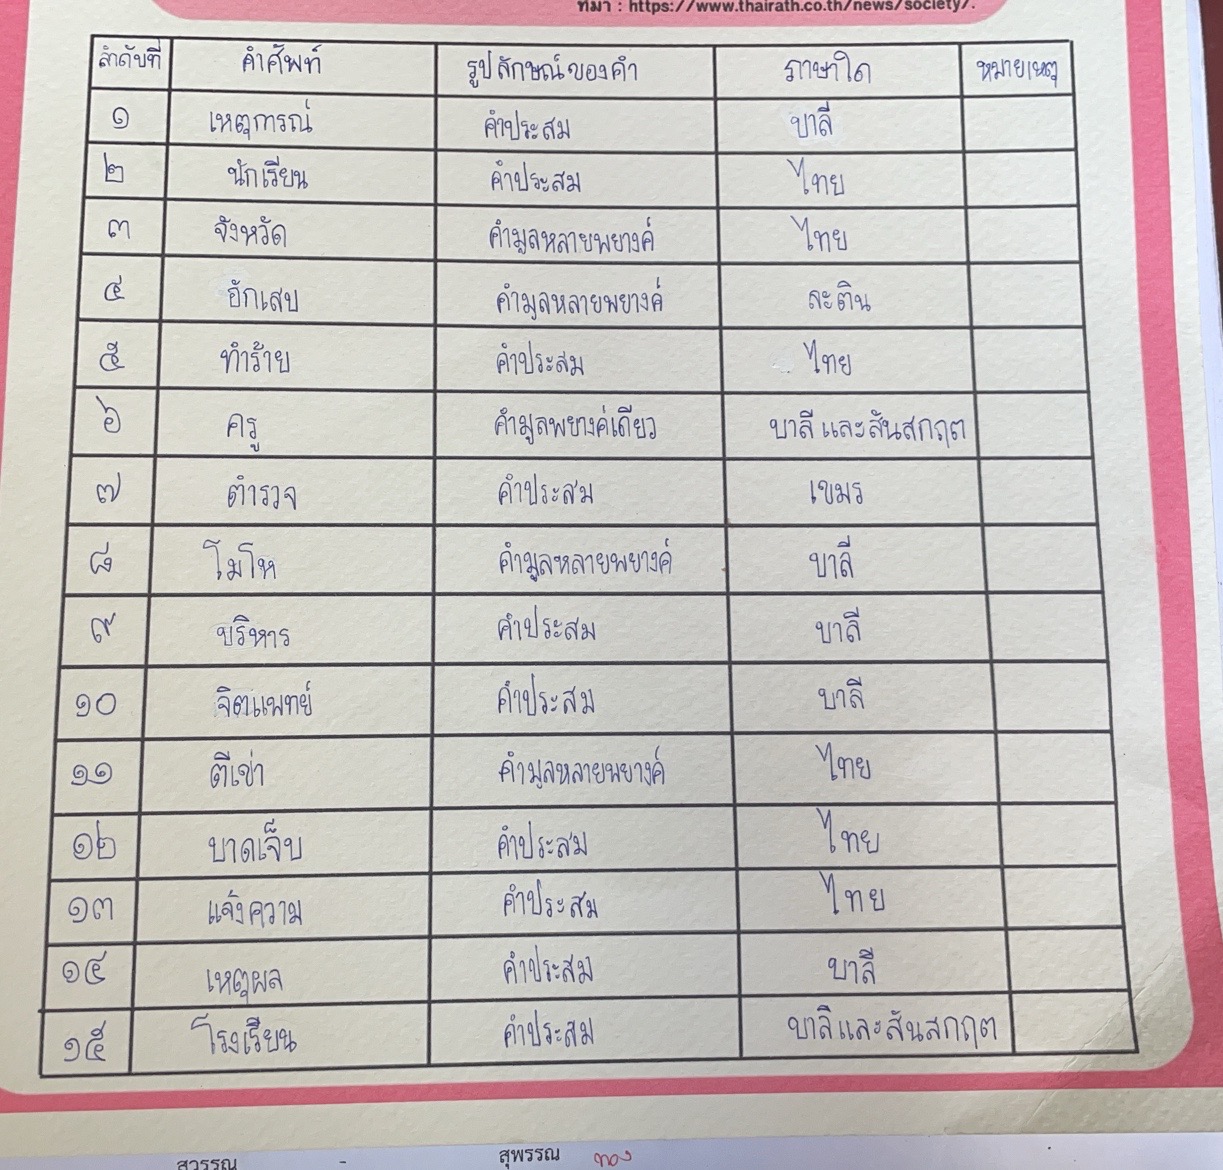 ที่มา : https://www.thairath.co.th/news/society/.
ลำดับที่ คำศัพท์ รูปลักษณ์ของคำ ภาษาใด หมายเหตุ
๑ เหตุการณ์ คำประสม บาลี
๒ นักเรียน คำประสม ไทย
๓ จังหวัด คำมูลหลายพยางค์ ไทย
๔ อักเสบ คำมูลหลายพยางค์ ละติน
๕ ทำร้าย คำประสม ไทย
๖ ครู คำมูลพยางค์เดียว บาลีและสันสกฤต
๗ ตำรวจ คำประสม เขมร
๘ โมโห คำมูลหลายพยางค์ บาลี
๙ บริหาร คำประสม บาลี
๑๐ จิตแพทย์ คำประสม บาลี
๑๑ ตีเข่า คำมูลหลายพยางค์ ไทย
๑๒ บาดเจ็บ คำประสม ไทย
๑๓ แจ้งความ คำประสม ไทย
๑๔ เหตุผล คำประสม บาลี
๑๕ โรงเรียน คำประสม บาลีและสันสกฤต
สุวรรณ - สุพรรณ ทอง